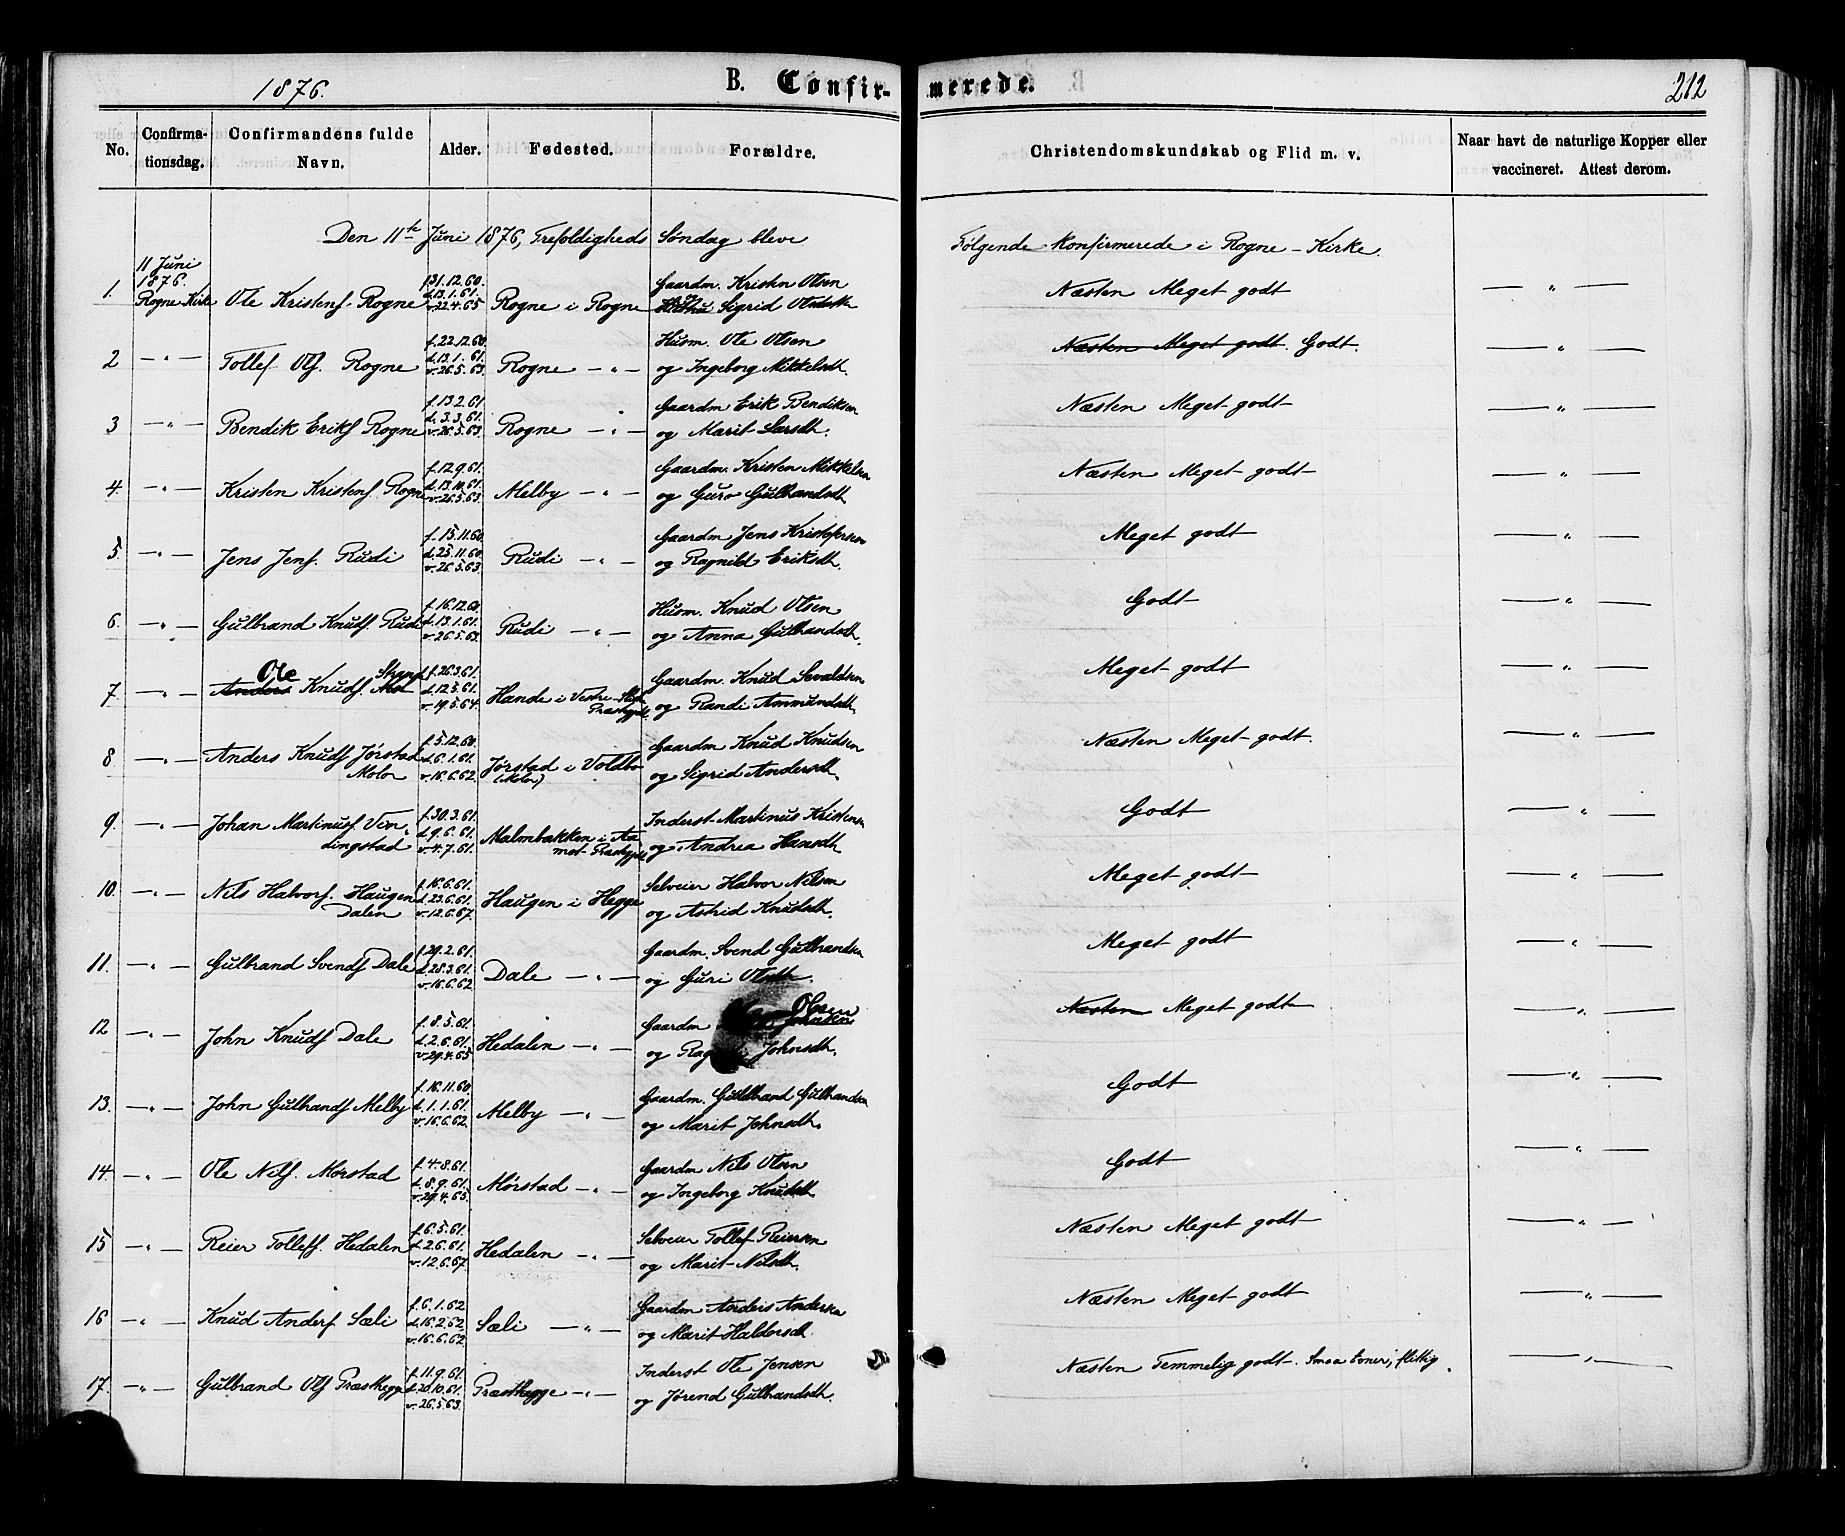 1876.
B. Confir-
merede.
212
No.
Confirma-
tionsdag.
Confirmandens fulde
Navn.
Alder.
Fødested.
Forældre.
Christendomskundskab og Flid m. v.
Naar havt de naturlige Kopper eller
vaccineret. Attest derom.
Den 11te Juni 1876, Trefoldigheds Søndag bleve
Følgende Konfirmerede i Rogne-Kirke.
1.
11 Juni
1876.
Rogne Kirke
Ole Kristenf. Rogne
31.12.60.
d. 13.1.61.
v. 22.4.65
Rogne i Rogne
Gaardm. Kristen Olsen
Sigrid Olsdtr
Næsten Meget godt
— „ —
2
— „ —
Tollef Olf. Rogne
f. 22.12.60.
d. 13.1.61.
v. 26.5.63.
Rogne — „ —
Husm. Ole Olsen
og Ingeborg Mikkelsdtr.
Næsten Meget godt. Godt.
— „ —
3
— „ —
Bendik Erikf Rogne
f. 13.2.61
d. 3.3.61.
v. 26.5.63.
Rogne — „ —
Gaardm Erik Bendiksen
og Marit Larsdtr.
Næsten Meget godt
— „ —
4.
— „ —
Kristen Kristenf. Rogne
f. 12.9.61.
d. 13.10.61.
v. 26.5.63.
Melby — „ —
Gaardm. Kristen Mikkelsen
og Guro Gulbrandsdtr
Næsten Meget godt
— „ —
5
— „ —
Jens Jenf. Rudi
f. 15.11.60.
d. 25.11.60.
v. 26.5.63.
Rudi — „ —
Gaardm Jens Kristofersen
og Ragnild Eriksdtr.
Meget godt
— „ —
6.
— „ —
Gulbrand Knudf. Rudi
f. 16.12.60.
d. 13.1.61.
v. 26.5.63.
Rudi — „ —
Husm. Knud Olsen
og Anna Gulbrandsdtr.
Godt
— „ —
7.
— „ —
Ole
Anders Knudf.
f. 26.3.61.
d. 12.5.61.
v. 19.5.64.
Hande i Vestre Slidre
Præstegjeld
Gaardm. Knud Sevaldsen
og Randi Ammundsdtr.
Meget godt
— „ —
8
— „ —
Anders Knudf Jørstad
Molor
f. 5.12.60.
d. 6.1.61.
v. 16.6.62.
Jørstad i Voldbo
(Molor)
Gaardm Knud Knudsen
og Sigrid Andersdtr.
Næsten Meget godt.
— „ —
9.
— „ —
Johan Martinusf. Vin-
dingstad
f. 30.3.61.
d. 9.6.61.
v. 4.7.61.
Malmbakken i Aa
mot Præstegjeld
Inderst Martinus Kristensen
og Andrea Hansdtr
Godt
— „ —
10.
— „ —
Nils Halvorf. Haugen
Dalen
f. 16.6.61.
d. 23.6.61.
v. 12.6.67.
Haugen i Hegge
Selveier Halvor Nilsen
og Astrid Knudsdtr.
Meget godt
— „ —
11.
— „ —
Gulbrand Svendf Dale
f. 29.2.61.
d. 28.3.61.
v. 16.6.62.
Dale — „ —
Gaardm. Svend Gulbrandsen
og Guri Olsdtr.
Meget godt
— „ —
12
— „ —
John Knudf Dale
f. 8.5.61.
d. 2.6.61.
v. 29.4.65
Hedalen — „ —
Gaardm Olsen
og Johnsdtr.
Næsten Meget godt
— „ —
13.
— „ —
John Gulbrandf Melby
f. 16.11.60.
d. 1.1.61.
v. 16.6.62.
Melby — „ —
Gaardm. Gulbrand Gulbrandsen
og Marit Johnsdtr.
Godt
— „ —
14.
— „ —
Ole Nilf. Mørstad
f. 4.8.61.
d. 8.9.61.
v. 29.4.65.
Mørstad — „ —
Gaardm Nils Olsen
og Ingeborg Knutsdtr
Godt
— „ —
15
— „ —
Reier Tolleff. Hedalen
f. 6.5.61.
d. 2.6.61.
v. 12.6.67.
Hedalen — „ —
Selveier Tollef Reiersen
og Marit Nilsdtr.
Næsten Meget godt
— „ —
16
— „ —
Knud Anderf Sæli
f. 6.1.62.
d. 16.2.62.
v. 16.6.62.
Sæli — „ —
Gaardm Anders Andersen
og Marit Haldorsdtr.
Næsten Meget godt
— „ —
17.
— „ —
Gulbrand Olf Præsthegge
f. 11.9.61.
d. 20.10.61.
v. 26.5.63.
Præsthegge — „ —
Inderst Ole Jensen
og Jørend Gulbrandsdtr.
Næsten Temmelig godt. Smaa evner, flittig.
— „ —